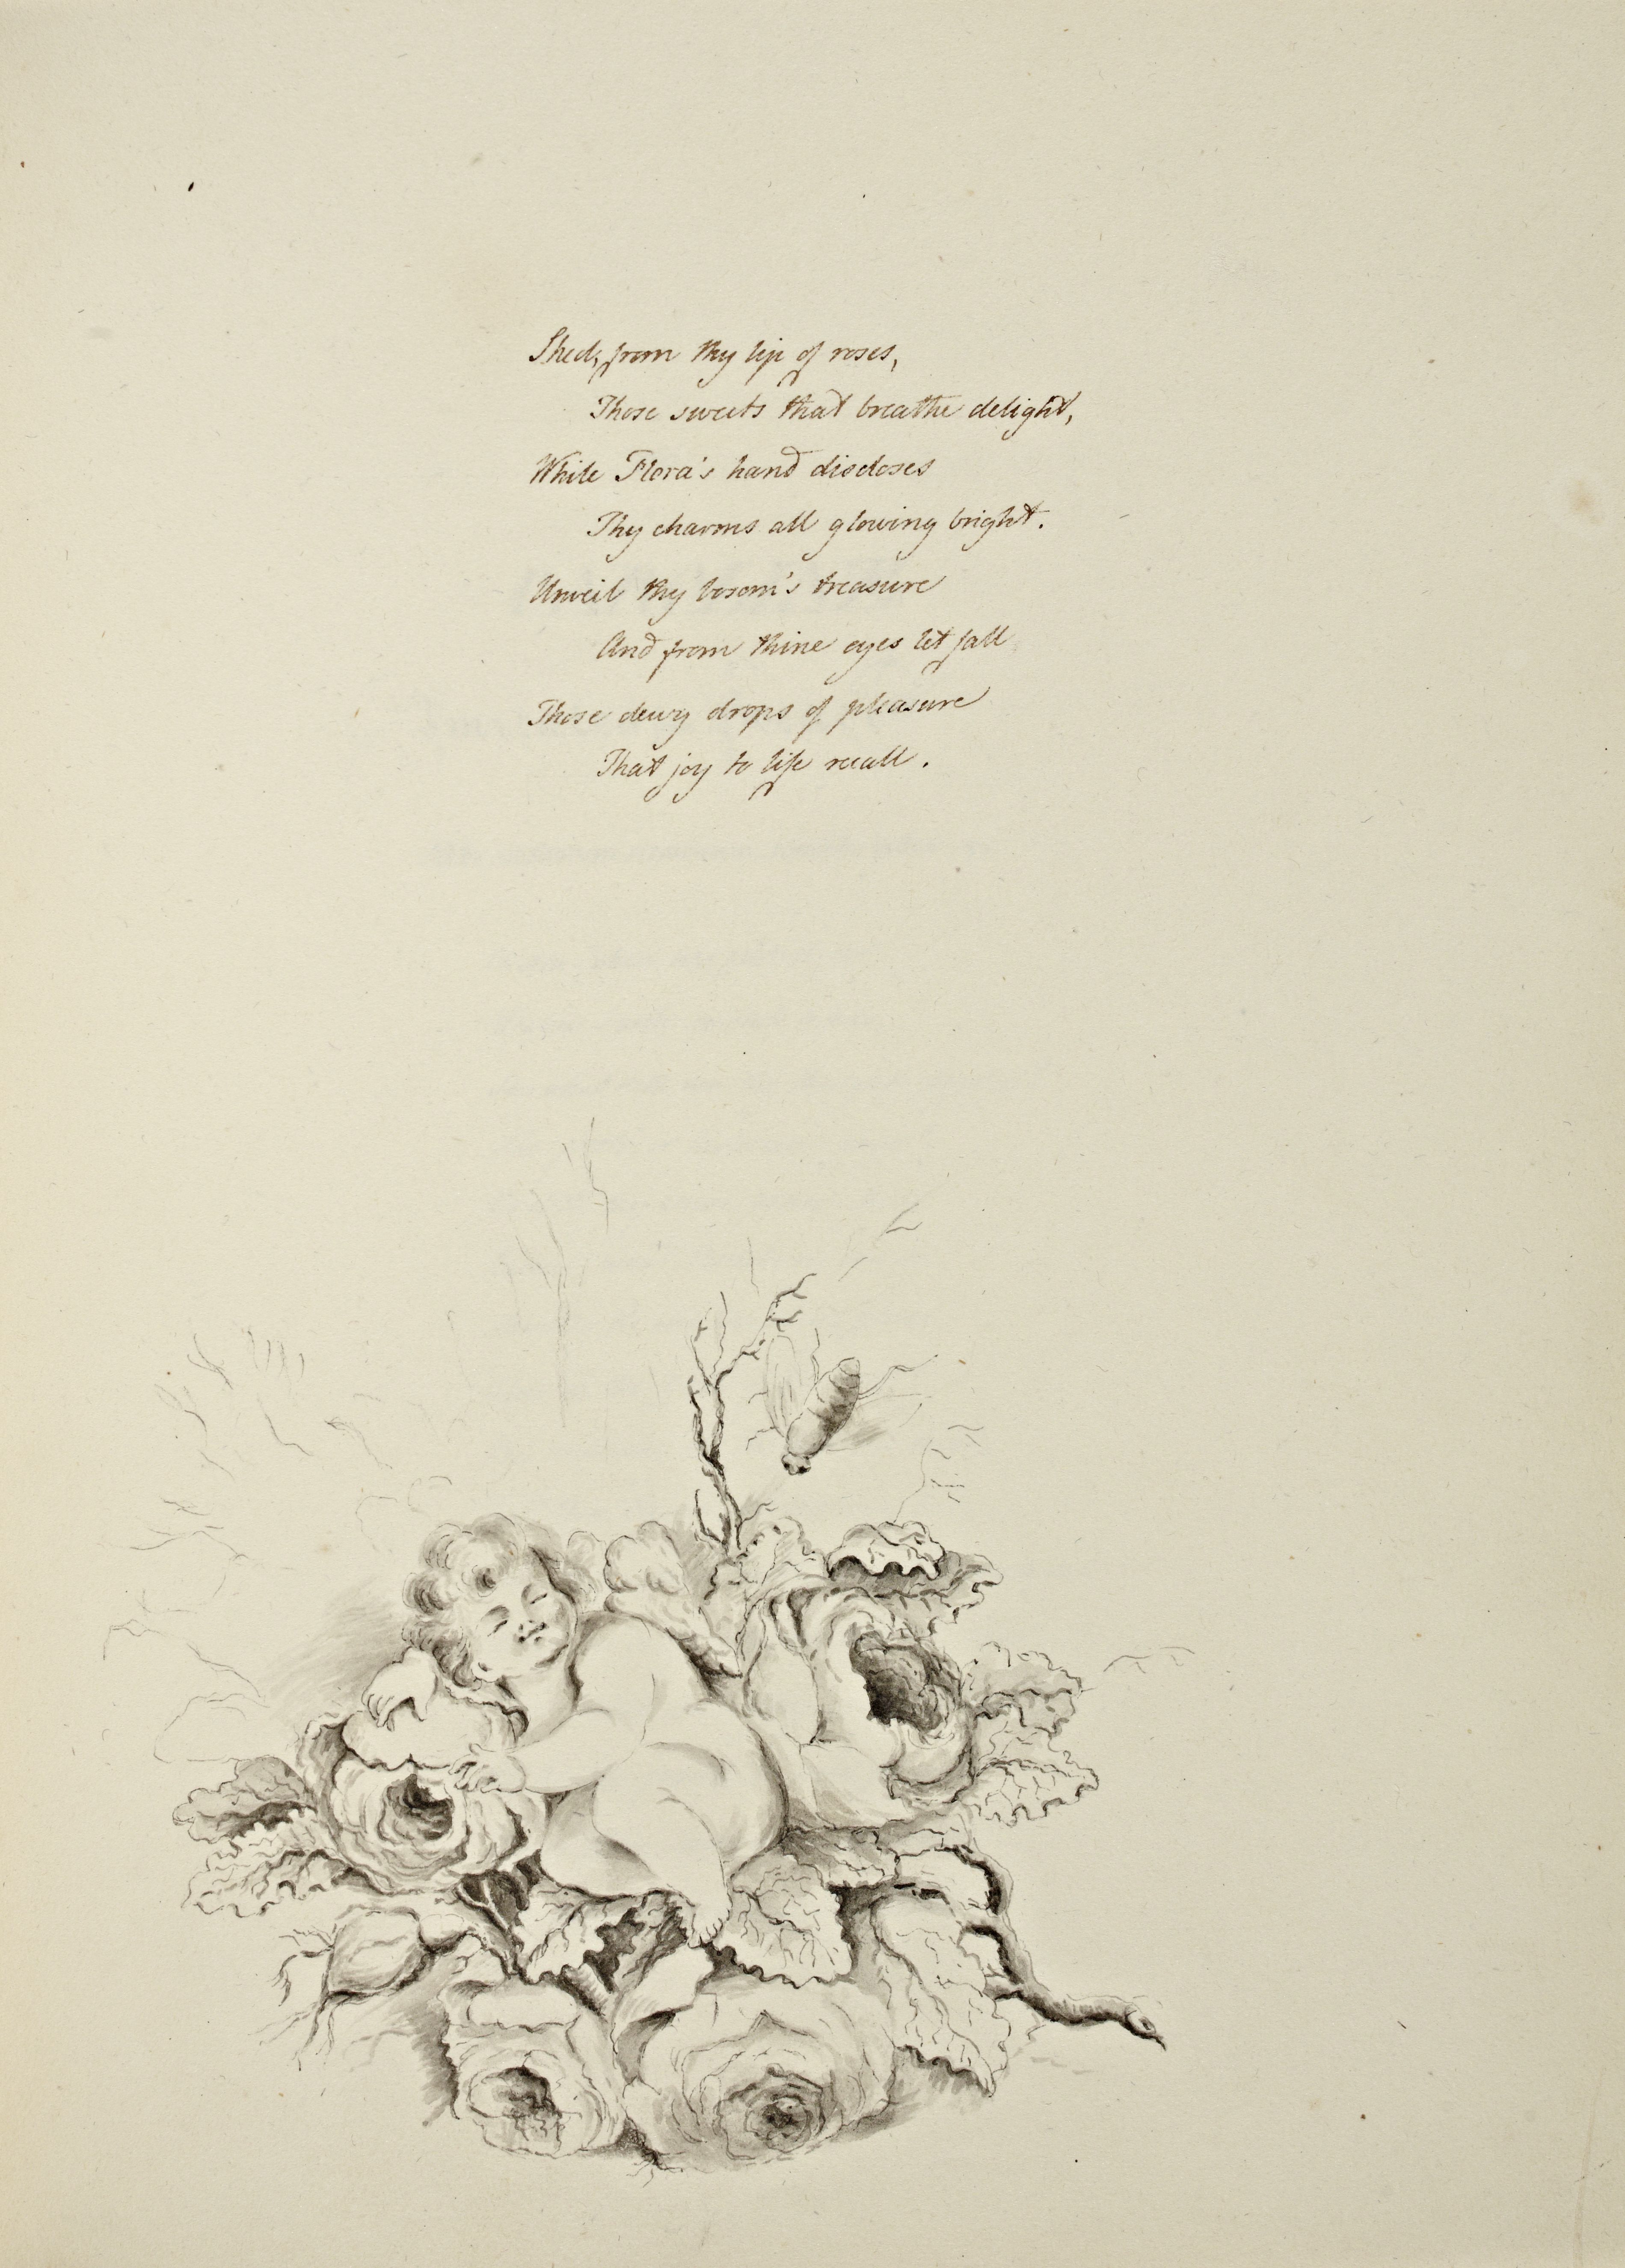 Shed, from thy lip of roses,
Those sweets that breathe delight,
While Flora's hand discloses
Thy charms all glowing bright.
Unveil thy bosom's treasure
And from thine eyes let fall
Those dewy drops of pleasure
That joy to life recall.